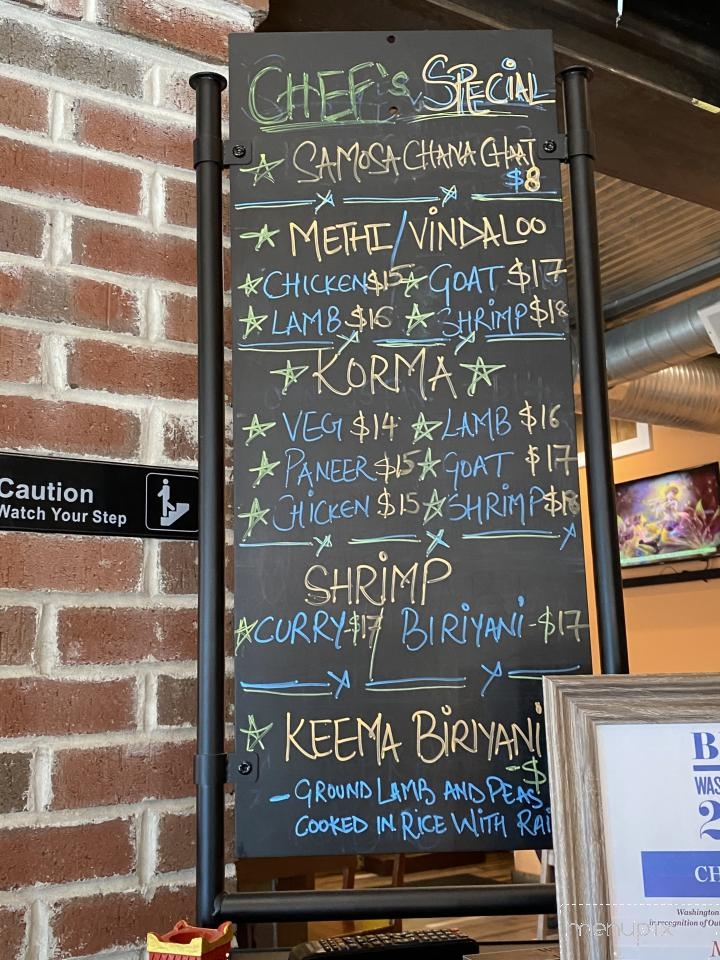 CHEF's SPECIAL
SAMOSA CHANA CHAAT
$8
METHI/VINDALOO
CHICKEN $15 GOAT $17
LAMB $16 SHRIMP $18
KORMA
VEG $14 LAMB $16
PANEER $15 GOAT $17
CHICKEN $15 SHRIMP $18
SHRIMP
CURRY $17 / BIRIYANI -$17
KEEMA BIRIYANI
-$
- GROUND LAMB AND PEAS
COOKED IN RICE WITH RAI
Caution
Watch Your Step
B
WAS
2
CH
Washington
in recognition of Out
M
menupix